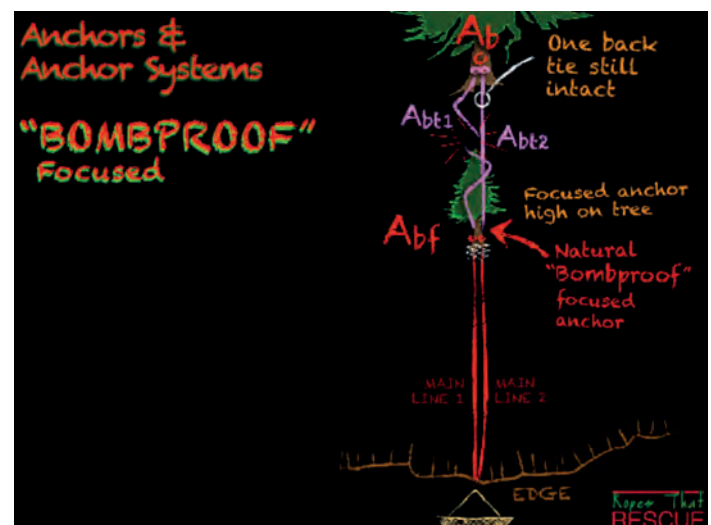 Anchors &
Anchor Systems
"BOMBPROOF"
Focused
Ab
One back
tie still
intact
Abt1
Abt2
Focused anchor
high on tree
Abf
Natural
"Bombproof"
focused
anchor
MAIN
LINE 1
MAIN
LINE 2
EDGE
Ropes That
RESCUE